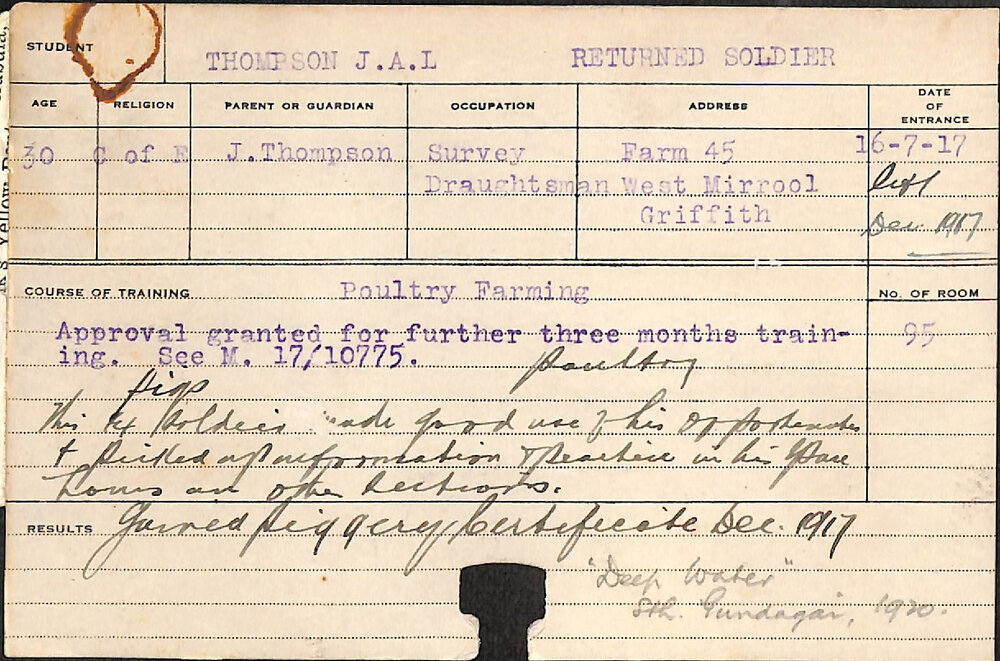 STUDENT THOMPSON J.A.L RETURNED SOLDIER
AGE RELIGION PARENT OR GUARDIAN OCCUPATION ADDRESS DATE OF ENTRANCE
30 C of E J.Thompson Survey Farm 45 16-7-17
Draughtsman West Mirrool left
Griffith Dec. 1917
COURSE OF TRAINING Poultry Farming No. OF ROOM
Approval granted for further three months train- 95
ing. See M. 17/10775. Poultry
Pigs
This ex Soldier made good use of his opportunities
+ picked up information & practice in his spare
hours in other sections.
RESULTS Gained Piggery Certificate Dec. 1917
"Deep Water"
Sth. Gundagai, 1920.